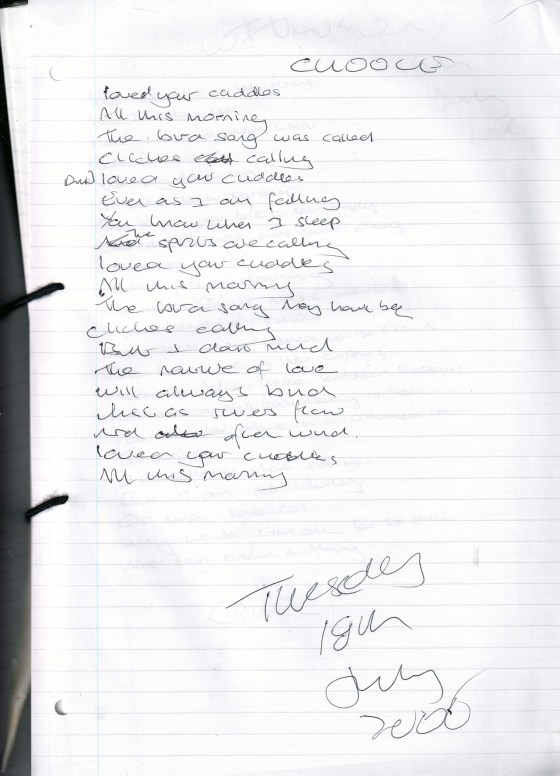 loved your cuddles
All this morning
The love song was called
Cliches calling
And loved your cuddles
Ever as I am falling
You know when I sleep
The spirits are calling
loved your cuddles
All this morning
The love song may have be
Cliches calling
But I don't mind
The nature of love
Will always bind
Just as rivers flow
And often wind.
loved your cuddles
All this morning
Tuesday
18th
July
2006